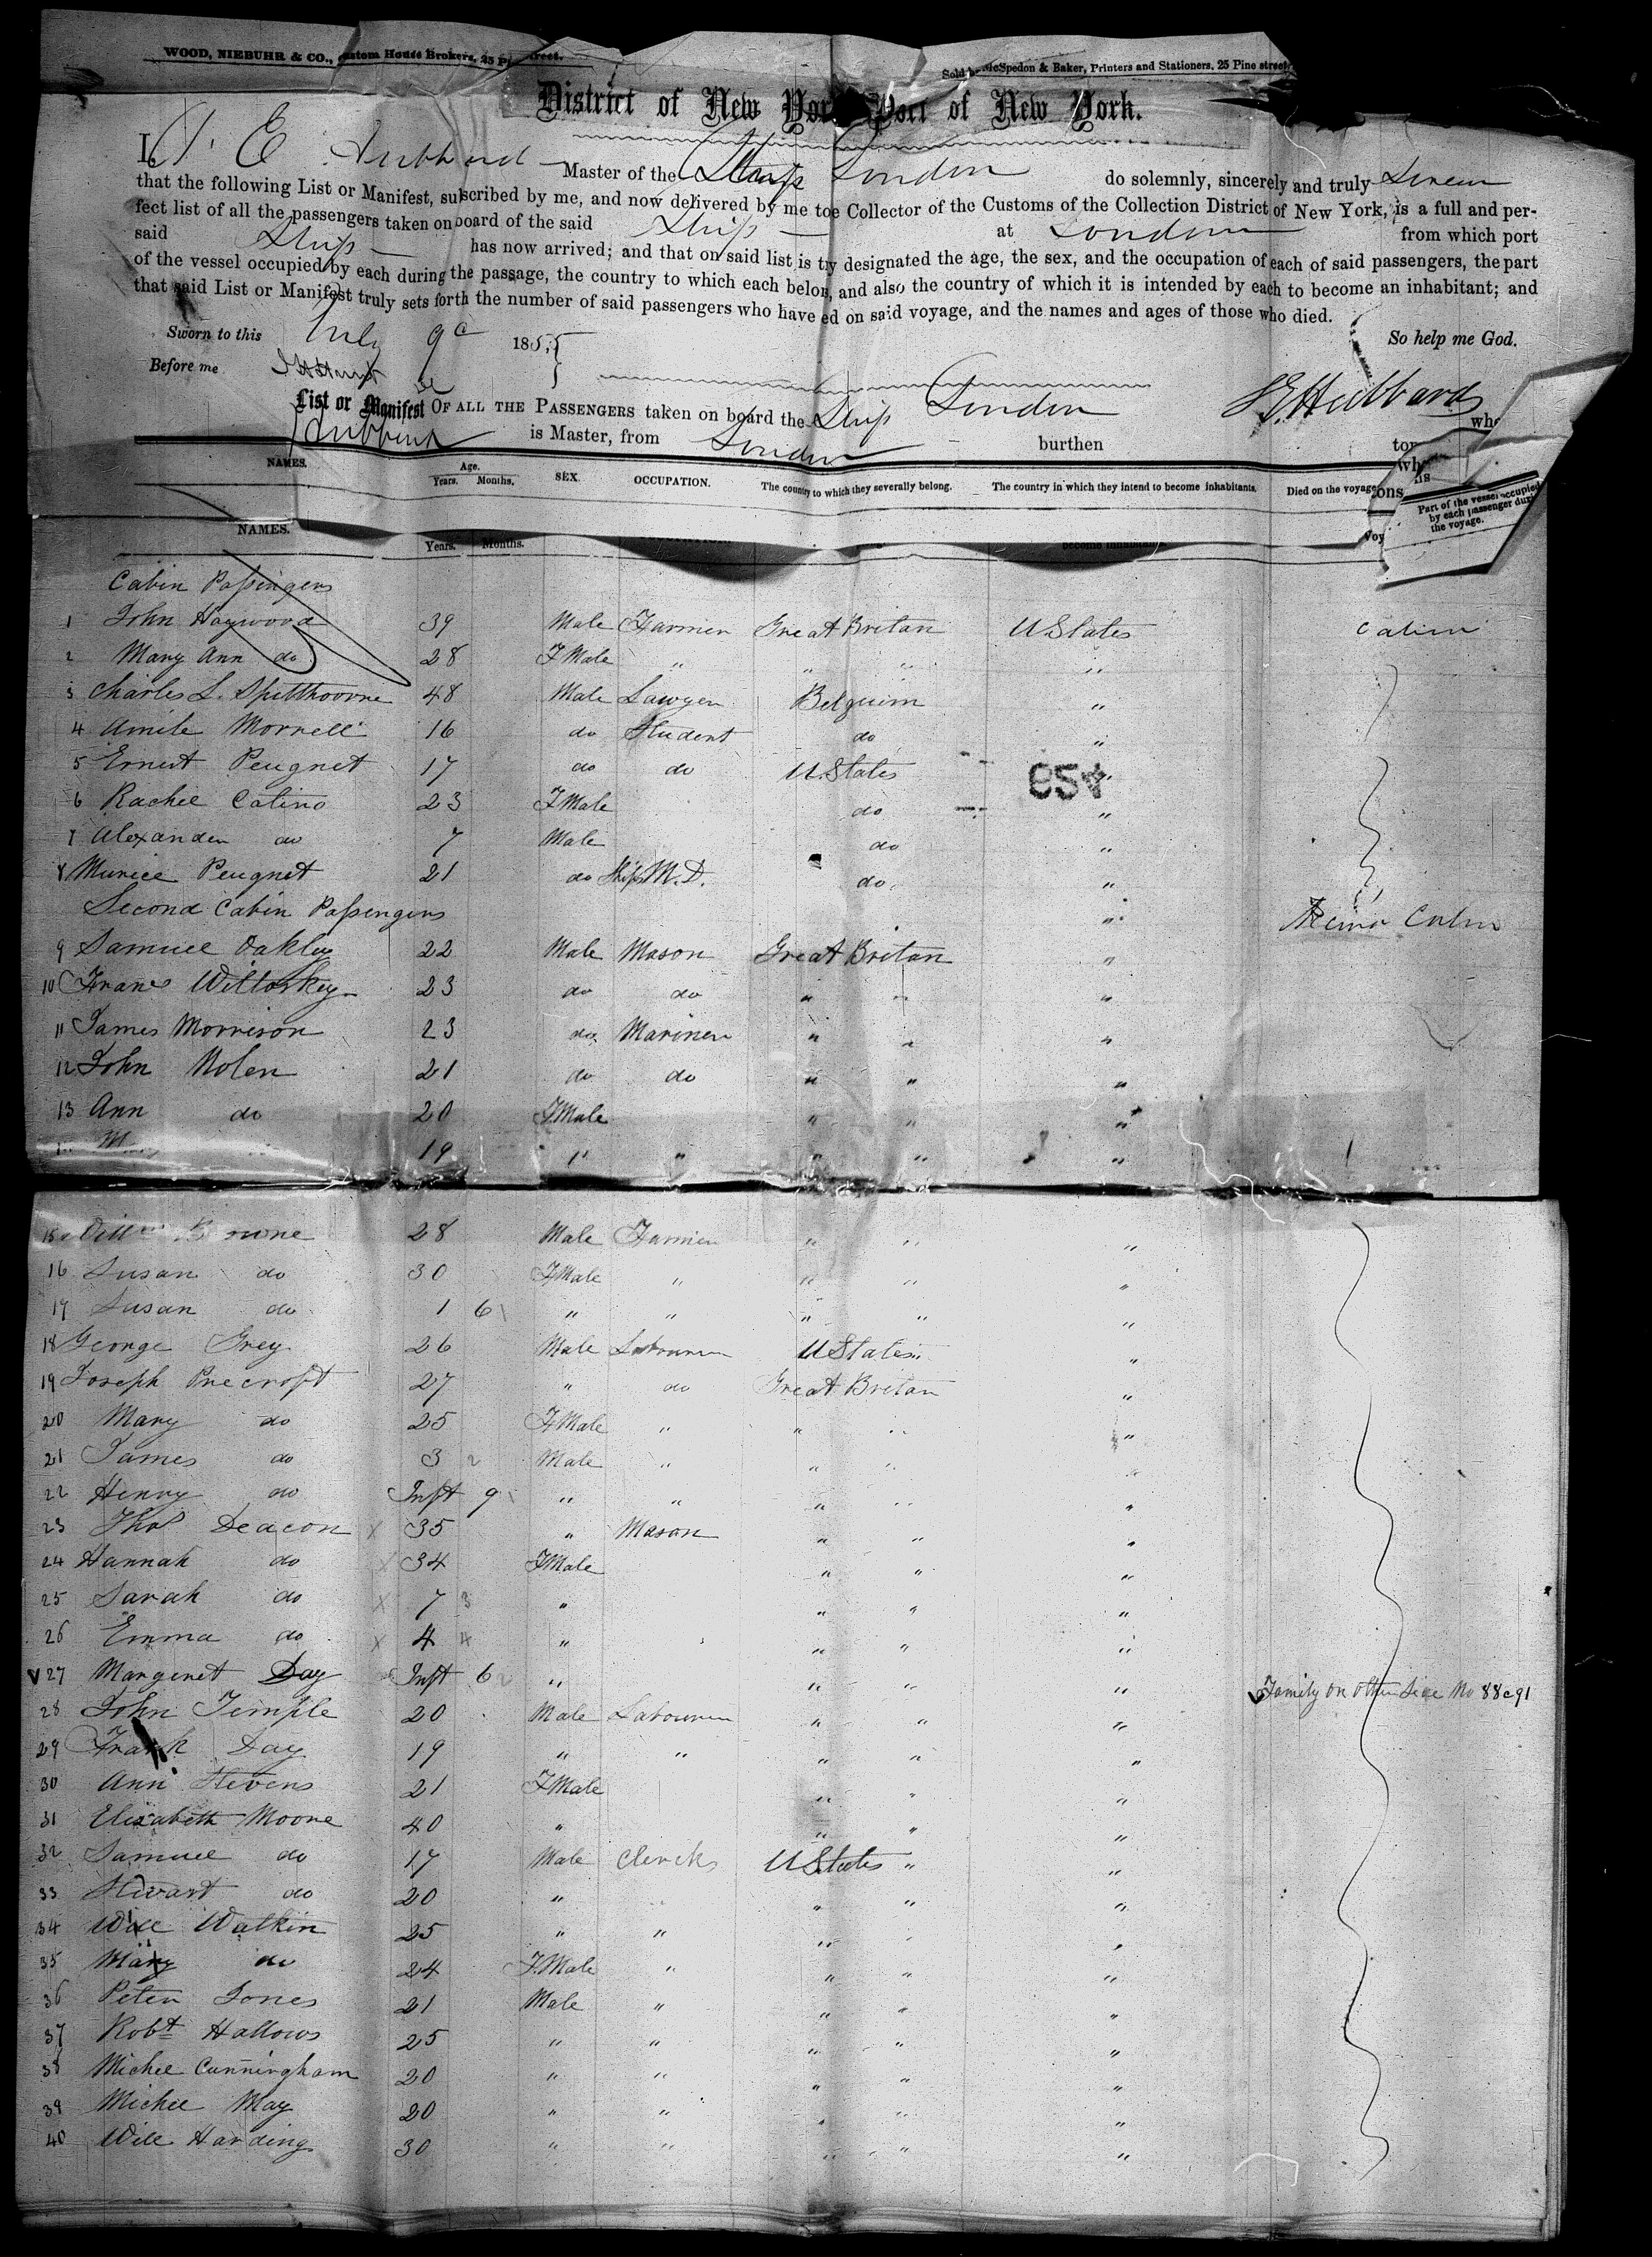 WOOD, NIEBUHR & CO., Custom House Brokers, 25 Pine Street.
Sold by McSpedon & Baker, Printers and Stationers, 25 Pine street
District of New York Port of New York.
I, E Hubbard Master of the Ship London do solemnly, sincerely and truly Swear
that the following List or Manifest, subscribed by me, and now delivered by me to e Collector of the Customs of the Collection District of New York, is a full and per-
fect list of all the passengers taken on board of the said Ship at London from which port
said Ship has now arrived; and that on said list is t ly designated the age, the sex, and the occupation of each of said passengers, the part
of the vessel occupied by each during the passage, the country to which each belon , and also the country of which it is intended by each to become an inhabitant; and
that said List or Manifest truly sets forth the number of said passengers who have ed on said voyage, and the names and ages of those who died.
Sworn to this July 9 185 5 So help me God.
Before me
E Hubbard
List or Manifest OF ALL THE PASSENGERS taken on board the Ship London
Hubbard is Master, from London burthen
NAMES. Age. Years. Months. SEX. OCCUPATION. The country to which they severally belong. The country in which they intend to become inhabitants. Died on the voyage Part of the vessel occupied by each passenger during the voyage.
NAMES. Years. Months.
Cabin Passengers
1 John Haywood 39 Male Farmer Great Britan U States Cabin
2 Mary Ann do 28 F Male " " " "
3 Charles L. Spilthoorne 48 Male Lawyer Belguim "
4 Amile Morrell 16 do Student do "
5 Ernest Peugnet 17 do do U States "
6 Rachel Catino 23 F Male do "
7 Alexander do 7 Male do "
8 Murice Peugnet 21 do Ships M.D. do "
Second Cabin Passengers "
9 Samuel Oakley 22 Male Mason Great Britan "
10 Frans Wiltoskey 23 do do " " "
11 James Morrison 23 do Mariner " " "
12 John Nolen 21 do do " " "
13 Ann do 20 F Male " " "
19 " " " " "
15 Willm Browne 28 Male Farmer " " "
16 Susan do 30 F Male " " " "
17 Susan do 1 6 " " " " "
18 George Grey 26 Male Labourer U States "
19 Joseph Precroft 27 " do Great Britan "
20 Mary do 25 F Male " " " "
21 James do 3 2 Male " " " "
22 Henry do Inft 9 " " " " "
23 Thos Deacon X 35 " Mason " " "
24 Hannah do X 34 F Male " " "
25 Sarah do X 7 3 " " " "
26 Emma do X 4 4 " " " "
V 27 Margeret Day Inft 6 " " " " Family on other side No 88 c 91
28 John Temple 20 Male Labourer " " "
29 Frank Day 19 " " " " "
30 Ann Stevens 21 F Male " " "
31 Elizabeth Moore 40 " " " "
32 Samuel do 17 Male Clercks U States " "
33 Stewart do 20 " " " "
34 Will Watkin 25 " " " " "
35 Mary do 24 F Male " " " "
36 Peter Jones 21 Male " " " "
37 Robt Hallows 25 " " " " "
38 Michel Cunningham 20 " " " " "
39 Michel May 20 " " " " "
40 Will Harding 30 " " " " "